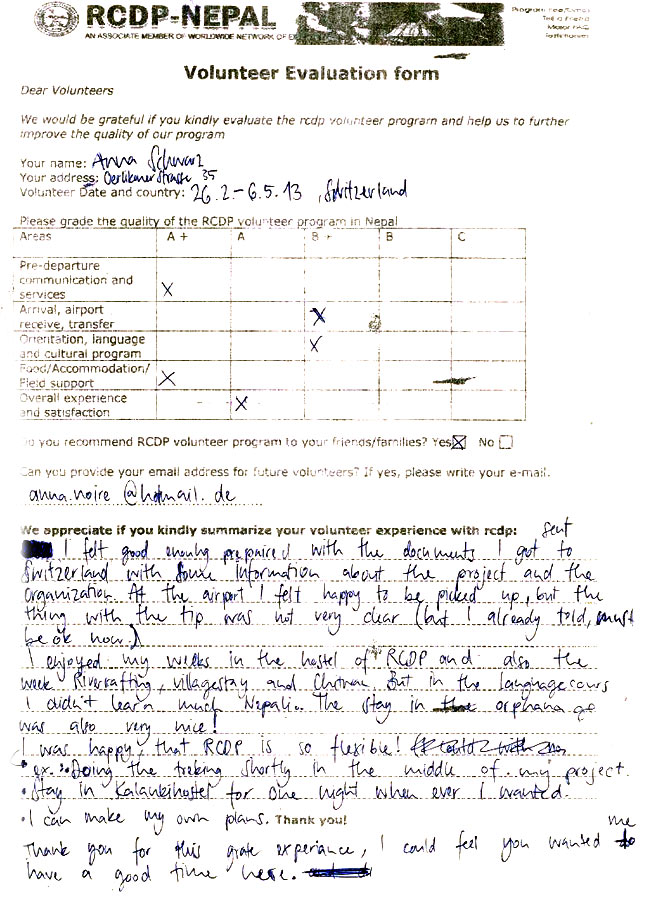 RCDP-NEPAL
AN ASSOCIATE MEMBER OF WORLDWIDE NETWORK OF
Volunteer Evaluation form
Dear Volunteers
We would be grateful if you kindly evaluate the rcdp volunteer program and help us to further
improve the quality of our program
Your name: Anna Schwarz
Your address: Oerlikonerstrasse 35
Volunteer Date and country: 26.2.-6.5.13, Switzerland
Please grade the quality of the RCDP volunteer program in Nepal
Areas A + A B + B C
Pre-departure
communication and
services X
Arrival, airport
receive, transfer X
Orientation, language
and cultural program X
Food/Accommodation/
Field support X
Overall experience
and satisfaction X
Do you recommend RCDP volunteer program to your friends/families? Yes ☒ No ☐
Can you provide your email address for future volunteers? If yes, please write your e-mail.
anna.noire @hotmail.de
We appreciate if you kindly summarize your volunteer experience with rcdp: sent
I felt good enouhg prepaired with the documents I got to
Switzerland with some information about the project and the
organization. At the airport I felt happy to be picked up, but the
thing with the tip was not very clear (but I already told, must
be ok now.)
I enjoyed my weeks in the hostel of RCDP and also the
week Riverrafting, villagestay and Chitwan. But in the languagecours
I didn't learn much Nepali.. The stay in orphanage
was also very nice!
I was happy, that RCDP is so flexible!
• ex.: • Doing the treking shortly in the middle of my project.
• Stay in Kalankihostel for one night when ever I wanted.
• I can make my own plans. Thank you!
me
Thank you for this grate experiance, I could feel you wanted to
have a good time here.